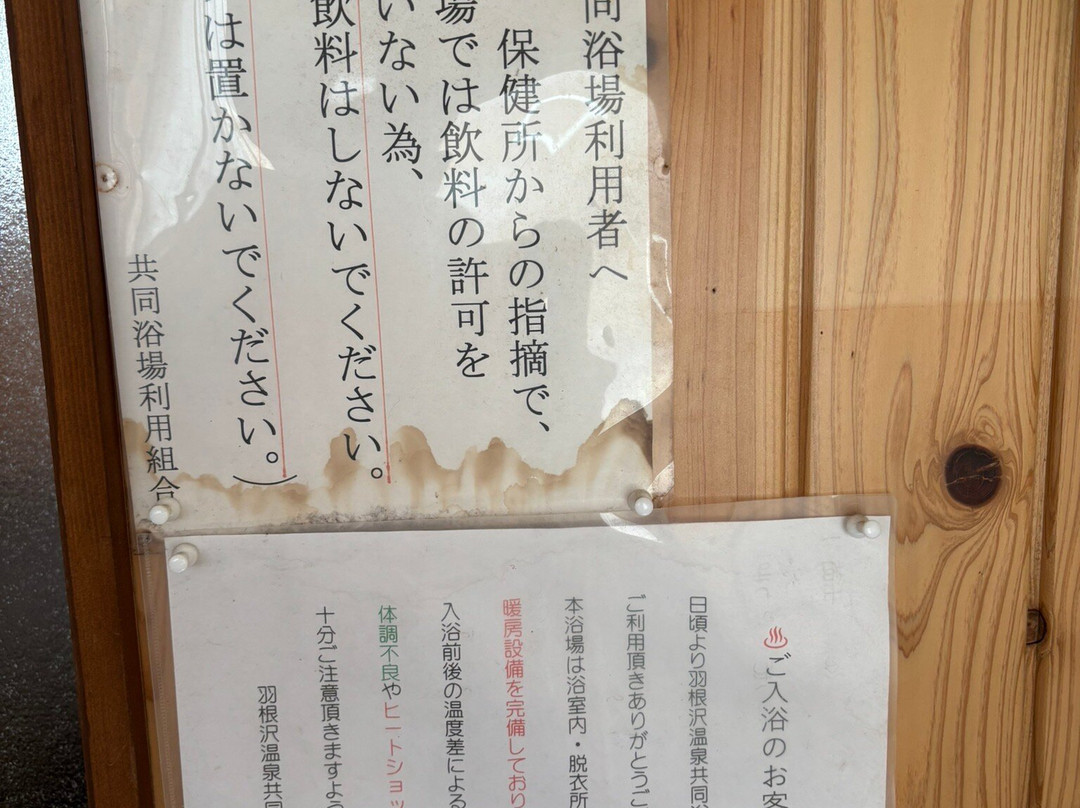 同浴場利用者へ
保健所からの指摘で、
場では飲料の許可を
いない為、
飲料はしないでください。
は置かないでください。）
共同浴場利用組合
ご入浴のお客
日頃より羽根沢温泉共同浴
ご利用頂きありがとうご
本浴場は浴室内・脱衣所
暖房設備を完備しており
入浴前後の温度差による
体調不良やヒートショッ
十分ご注意頂きますよう
羽根沢温泉共同